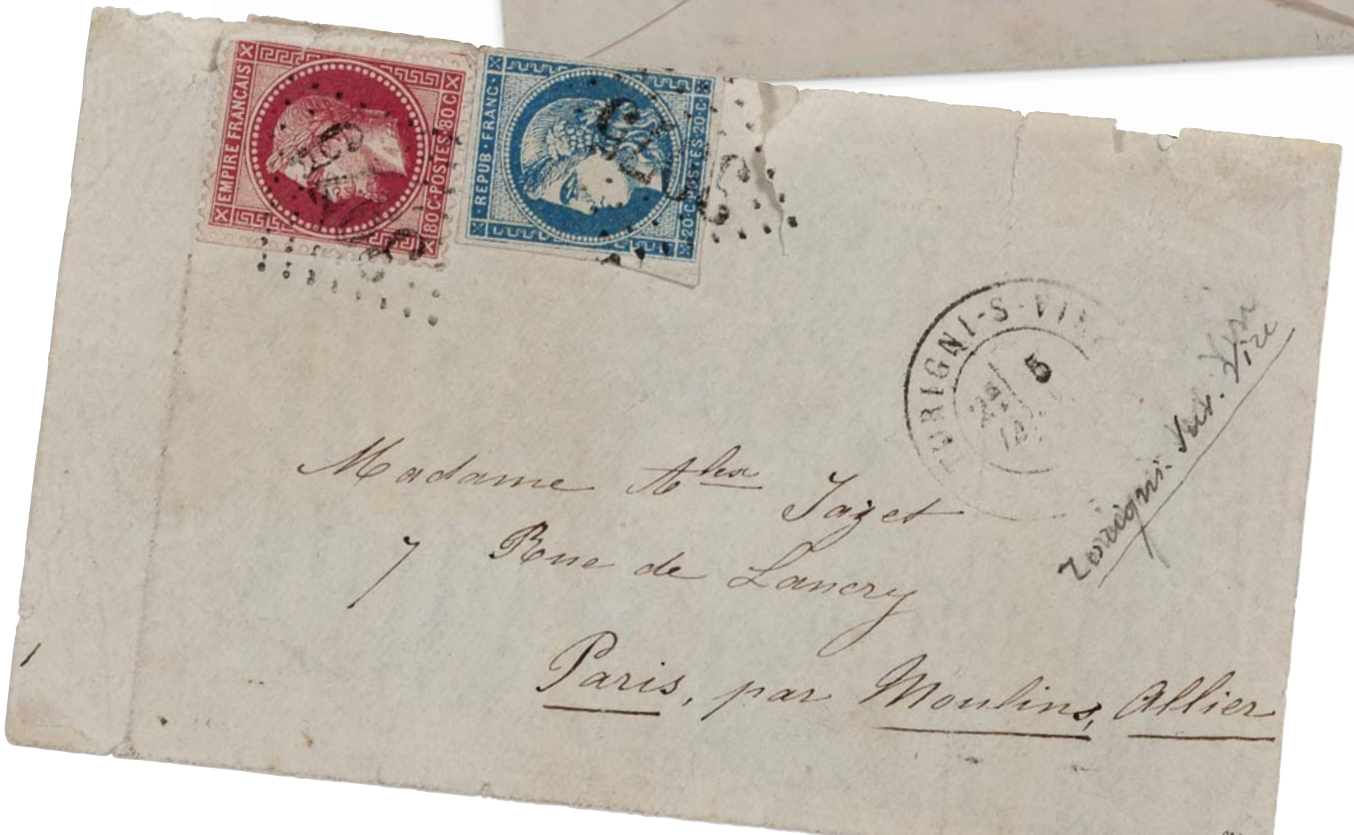 EMPIRE FRANÇAIS
80C·POSTES·80C
·REPUB·FRANC·
20·C·POSTES·20·C
TORIGNI-S-VI
5
Madame Alex Jazet
7 Rue de Lancry
Paris, par Moulins, Allier